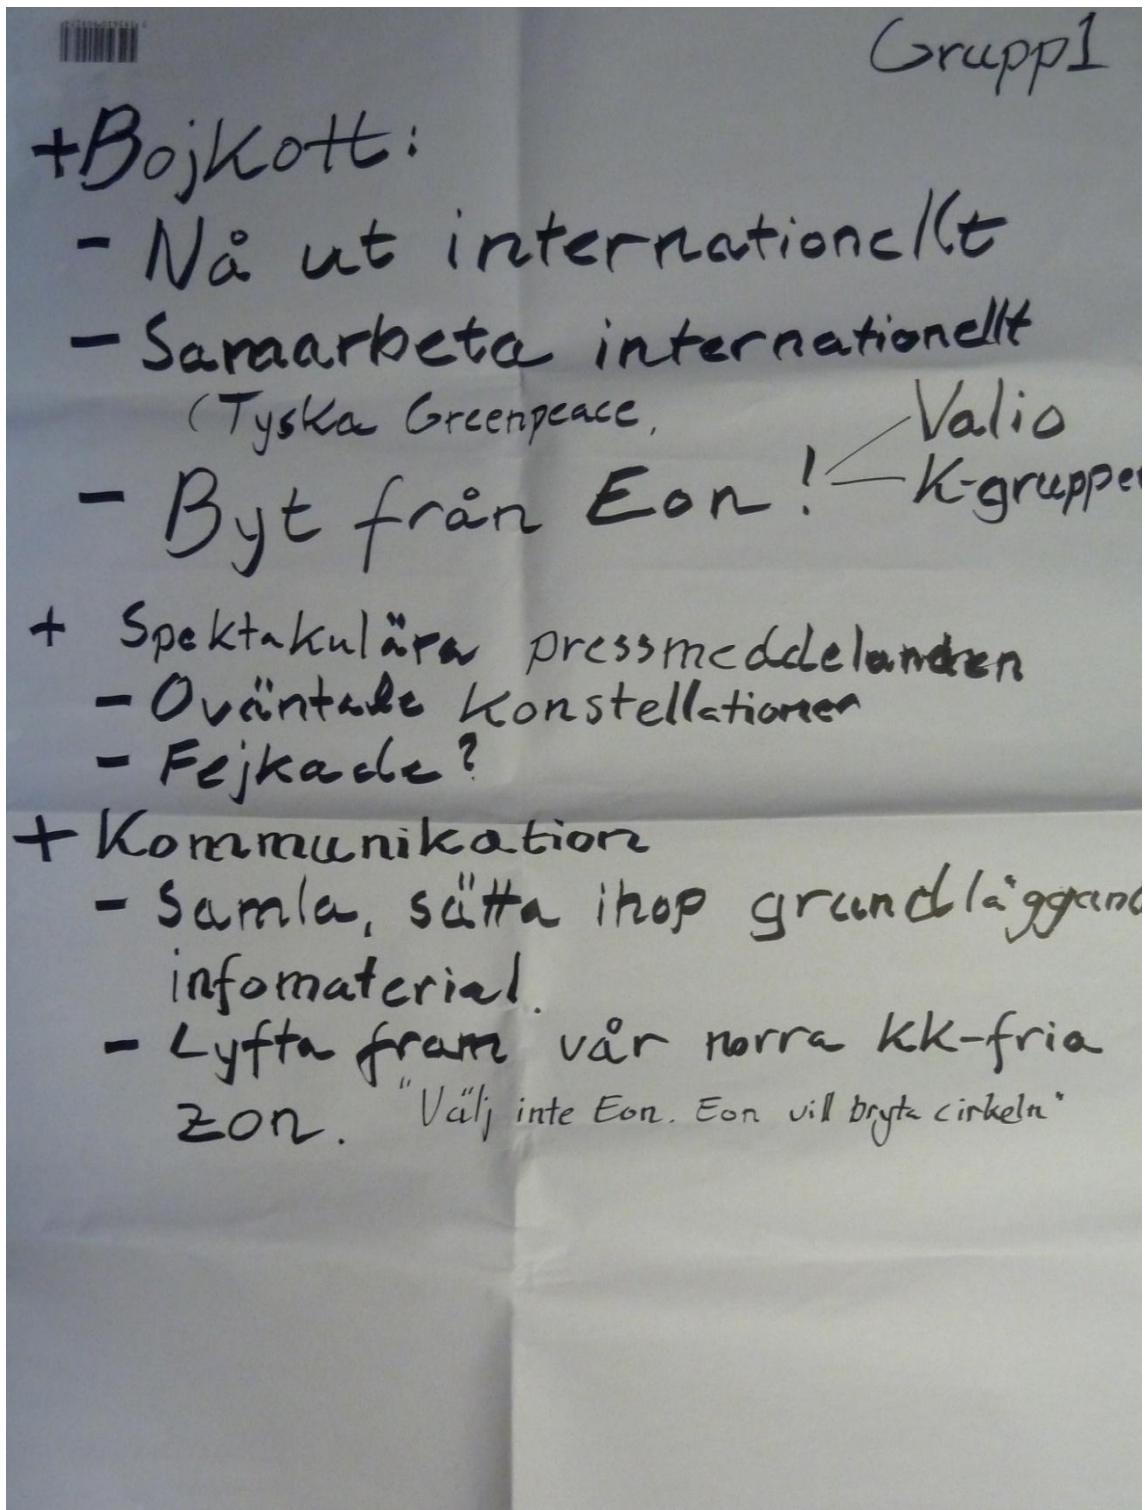 Grupp1
+Bojkott:
- Nå ut internationellt
- Samarbeta internationellt
(Tyska Greenpeace,
- Byt från Eon! Valio
K-gruppen
+ Spektakulära pressmeddelanden
- Oväntade konstellationer
- Fejkade?
+ Kommunikation
- Samla, sätta ihop grundläggand
infomaterial.
- Lyfta fram vår norra kk-fria
zon. "Välj inte Eon. Eon vill bryta cirkeln"